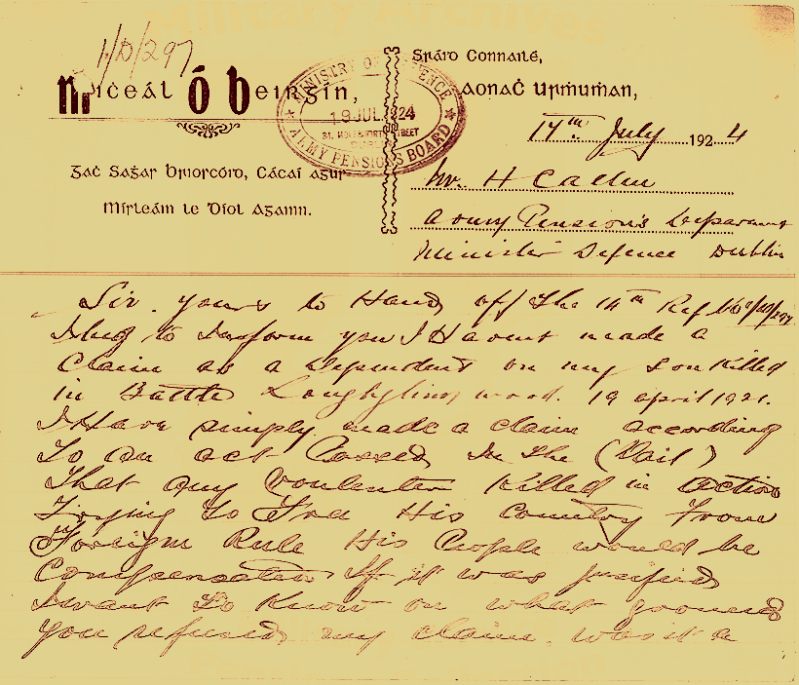 1/D/297
Mícheál Ó Beirgín,
Sráid Connaile,
Aonach Urmuman,
MINISTRY OF DEFENCE
19 JUL 1924
31. MOLESWORTH STREET
DUBLIN
ARMY PENSIONS BOARD
17th July 1924
Mr. H Callen
Army Pensions Department
Minister Defence Dublin
Gach Saghar Briorcóid, Cácaí agus
Mírleáin le Díol Againn.
Sir. yours to Hand off the 14th Ref No 1/D/297
I beg to Inform you I Havent made a
Claim as a dependent on my son Killed
in Battle Loughglinn, wood. 19 april 1921.
I Have simply made a claim according
To an act Passed In The (Dail)
That any Voulenteer Killed in action
Trying to Free His Country From
Foreign Rule His People would be
Compensated If it was justified
I want To Know on what grounds
you refused my claim. was it a